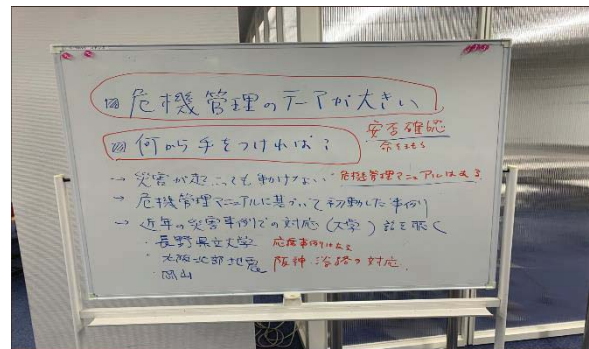 危機管理のテーマが大きい
何から手をつければ?
安否確認
命を守る
→ 災害が起こっても動けない 危機管理マニュアルはある
→ 危機管理マニュアルに基づいて初動した事例
→ 近年の災害事例での対応(大学)話を聴く
・長野県立大学 応援事例はある
・大阪北部地震 阪神・淡路の対応
・岡山